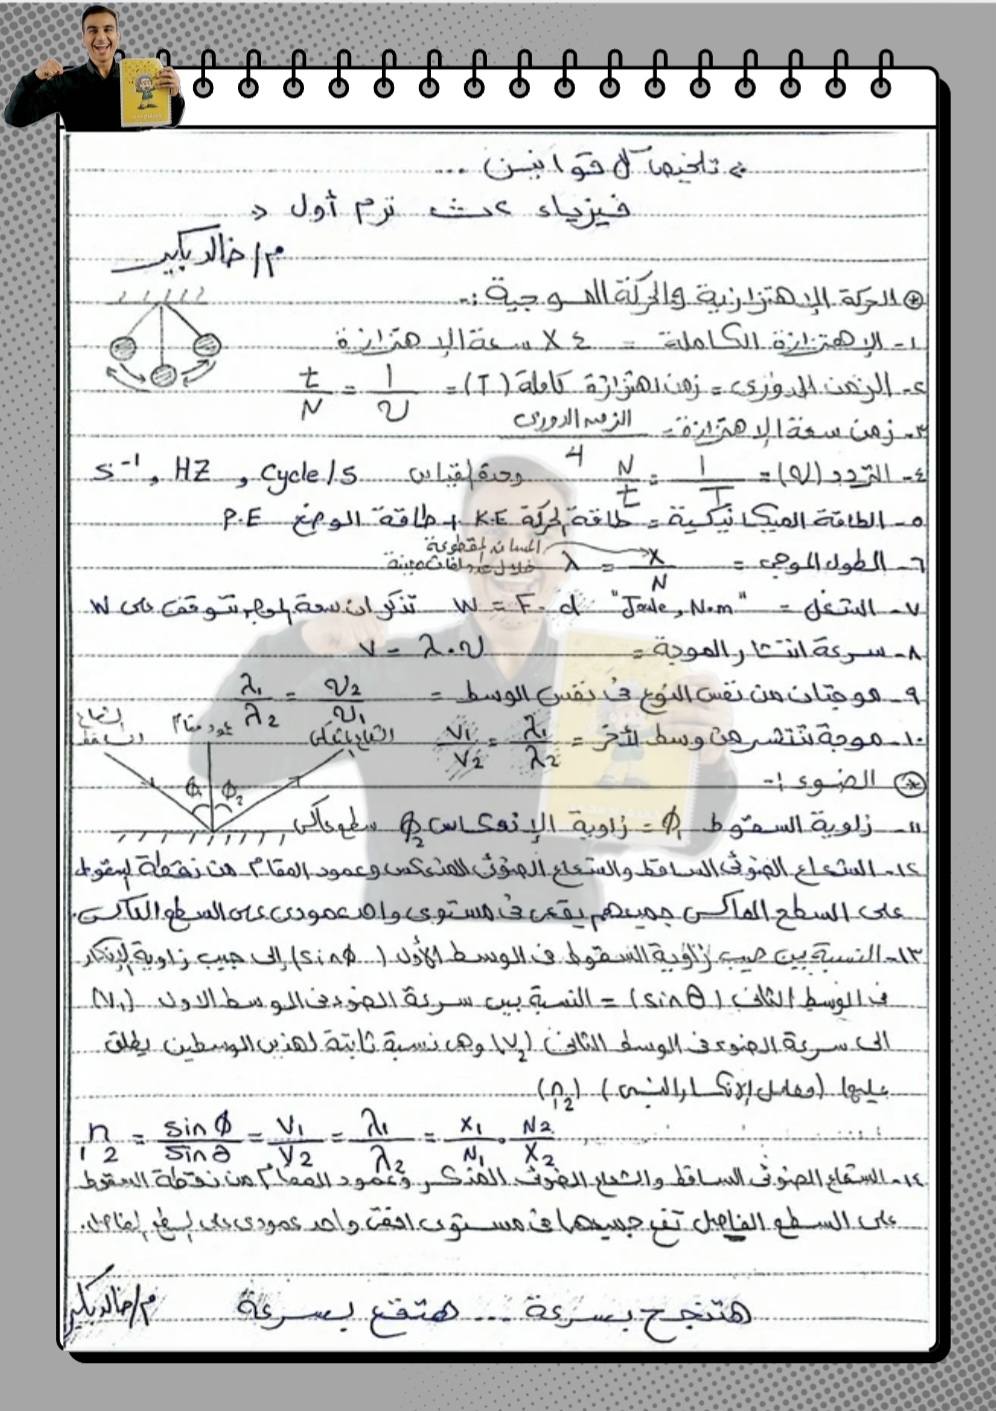 تلخيص كل قوانين ...
فيزياء ٢ث ترم أول
م/خالد بكير
الحركة الإهتزازية والحركة الموجية :-
١- الإهتزازة الكاملة = ٤ X سعة الإهتزازة
٢- الزمن الدورى = زمن اهتزازة كاملة (T) = 1/υ = t/N
٣- زمن سعة الإهتزازة = الزمن الدورى / 4
٤- التردد (υ) = 1/T = N/t وحدة القياس S⁻¹, HZ, Cycle/S
٥- الطاقة الميكانيكية = طاقة الحركة K.E + طاقة الوضع P.E
٦- الطول الموجى = λ = X/N المسافة المقطوعة خلال عدد لفات معينة
٧- الشغل = W = F. d "Joule, N.m" تذكر ان سعة الموجه تتوقف على W
٨- سرعة انتشار الموجة = V = λ.υ
٩- موجتان من نفس النوع فى نفس الوسط = λ₁/λ₂ = υ₂/υ₁
١٠- موجة تنتشر من وسط لآخر = V₁/V₂ = λ₁/λ₂
الشعاع الساقط
عمود مقام
الشعاع المنعكس
Φ₁ Φ₂
الضوء :-
١١- زاوية السقوط Φ₁ = زاوية الإنعكاس Φ₂ سطح عاكس
١٢- الشعاع الضوئى الساقط والشعاع الضوئى المنعكس وعمود المقام من نقطة السقوط
على السطح العاكس جميعهم يقعن فى مستوى واحد عمودى على السطح العاكس.
١٣- النسبة بين جيب زاوية السقوط فى الوسط الأول (sinΦ) إلى جيب زاوية الإنكسار
فى الوسط الثانى (sinθ) = النسبة بين سرعة الضوء فى الوسط الاول (V₁)
الى سرعة الضوء فى الوسط الثانى (V₂) وهى نسبة ثابتة لهذين الوسطين يطلق
عليها (معامل الإنكسار النسبى) (₁n₂)
₁n₂ = sinΦ/sinθ = V₁/V₂ = λ₁/λ₂ = X₁/N₁ . N₂/X₂
١٤- الشعاع الضوئى الساقط والشعاع الضوئى المنكسر وعمود المقام من نقطة السقوط
على السطح الفاصل تقع جميعها فى مستوى افقى واحد عمودى على السطح الفاصل.
هتنجح بسرعة ... هتقع بسرعة
م/خالد بكير